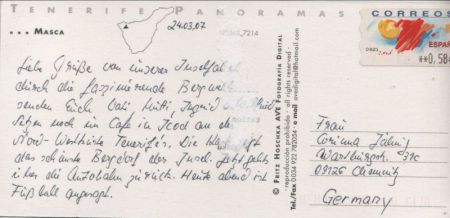 TENERIFE PANORAMAS
... MASCA
24.03.07
7214
CORREOS
ESPAÑA
**0,58
Liebe Grüße von unserer Inselfahrt
durch die faszinierende Bergwelt
senden Euch Vati, Mutti, Ingrid
noch ein Cafe in Icod an der
Nord-Westküste Teneriffa's. Die
das schönste Bergdorf der Insel. Jetzt geht's
über die Autobahn zurück. Heute abend ist
Fußball angesagt.
© FRITZ HOSCHKA AVE FOTOGRAFÍA DIGITAL
· reproducción prohibido · all rights reserved ·
Tel./Fax 0034 922 782054 · e mail avedigital@hotmail.com
Frau
Corinna
31c
09126 Chemnitz
Germany